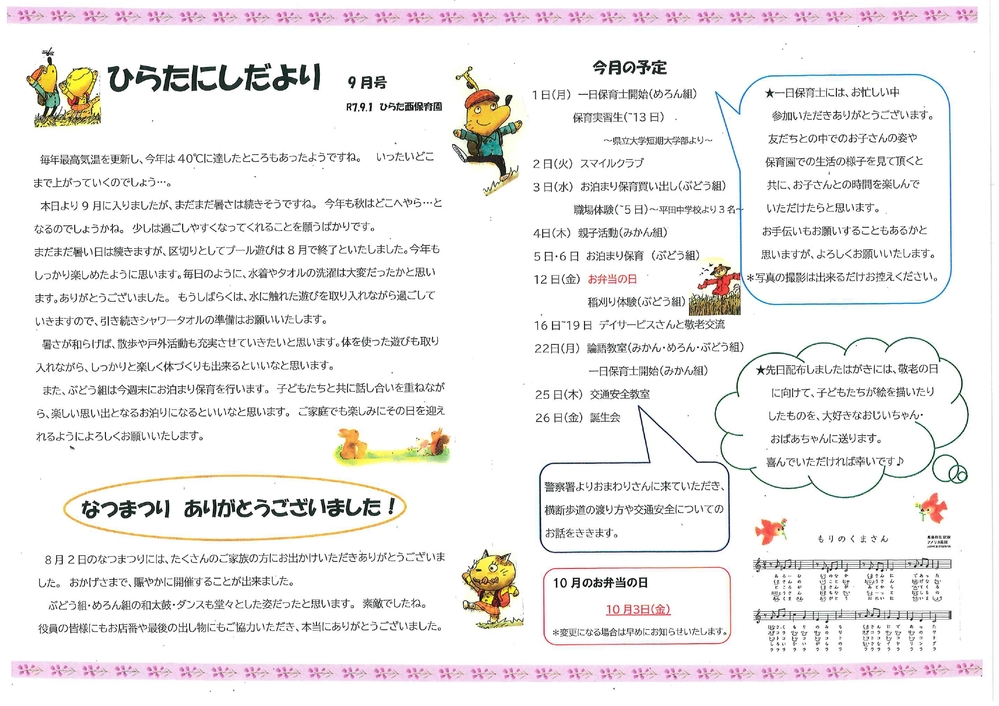 ひらたにしだより 9月号
R7.9.1 ひらた西保育園
毎年最高気温を更新し、今年は40℃に達したところもあったようですね。 いったいどこ
まで上がっていくのでしょう…。
本日より9月に入りましたが、まだまだ暑さは続きそうですね。 今年も秋はどこへやら…と
なるのでしょうかね。 少しは過ごしやすくなってくれることを願うばかりです。
まだまだ暑い日は続きますが、区切りとしてプール遊びは8月で終了といたしました。今年も
しっかり楽しめたように思います。毎日のように、水着やタオルの洗濯は大変だったかと思い
ます。ありがとうございました。 もうしばらくは、水に触れた遊びを取り入れながら過ごして
いきますので、引き続きシャワータオルの準備はお願いいたします。
暑さが和らげば、散歩や戸外活動も充実させていきたいと思います。体を使った遊びも取り
入れながら、しっかりと楽しく体づくりも出来るといいなと思います。
また、ぶどう組は今週末にお泊まり保育を行います。 子どもたちと共に話し合いを重ねなが
ら、楽しい思い出となるお泊りになるといいなと思います。 ご家庭でも楽しみにその日を迎え
れるようによろしくお願いいたします。
なつまつり ありがとうございました!
8月2日のなつまつりには、たくさんのご家族の方にお出かけいただきありがとうございま
した。 おかげさまで、賑やかに開催することが出来ました。
ぶどう組・めろん組の和太鼓・ダンスも堂々とした姿だったと思います。 素敵でしたね。
役員の皆様にもお店番や最後の出し物にもご協力いただき、本当にありがとうございました。
今月の予定
1日(月) 一日保育士開始(めろん組)
保育実習生(~13日)
~県立大学短期大学部より~
2日(火) スマイルクラブ
3日(水) お泊まり保育買い出し(ぶどう組)
職場体験(~5日)~平田中学校より3名~
4日(木) 親子活動(みかん組)
5日・6日 お泊まり保育 (ぶどう組)
12日(金) お弁当の日
稲刈り体験(ぶどう組)
16日~19日 デイサービスさんと敬老交流
22日(月) 論語教室(みかん・めろん・ぶどう組)
一日保育士開始(みかん組)
25日(木) 交通安全教室
26日(金) 誕生会
警察署よりおまわりさんに来ていただき、
横断歩道の渡り方や交通安全についての
お話をききます。
10月のお弁当の日
10月3日(金)
*変更になる場合は早めにお知らせいたします。
★一日保育士には、お忙しい中
参加いただきありがとうございます。
友だちとの中でのお子さんの姿や
保育園での生活の様子を見て頂くと
共に、お子さんとの時間を楽しんで
いただけたらと思います。
お手伝いもお願いすることもあるかと
思いますが、よろしくお願いいたします。
*写真の撮影は出来るだけお控えください。
★先日配布しましたはがきには、敬老の日
に向けて、子どもたちが絵を描いたり
したものを、大好きなおじいちゃん・
おばあちゃんに送ります。
喜んでいただければ幸いです♪
もりのくまさん